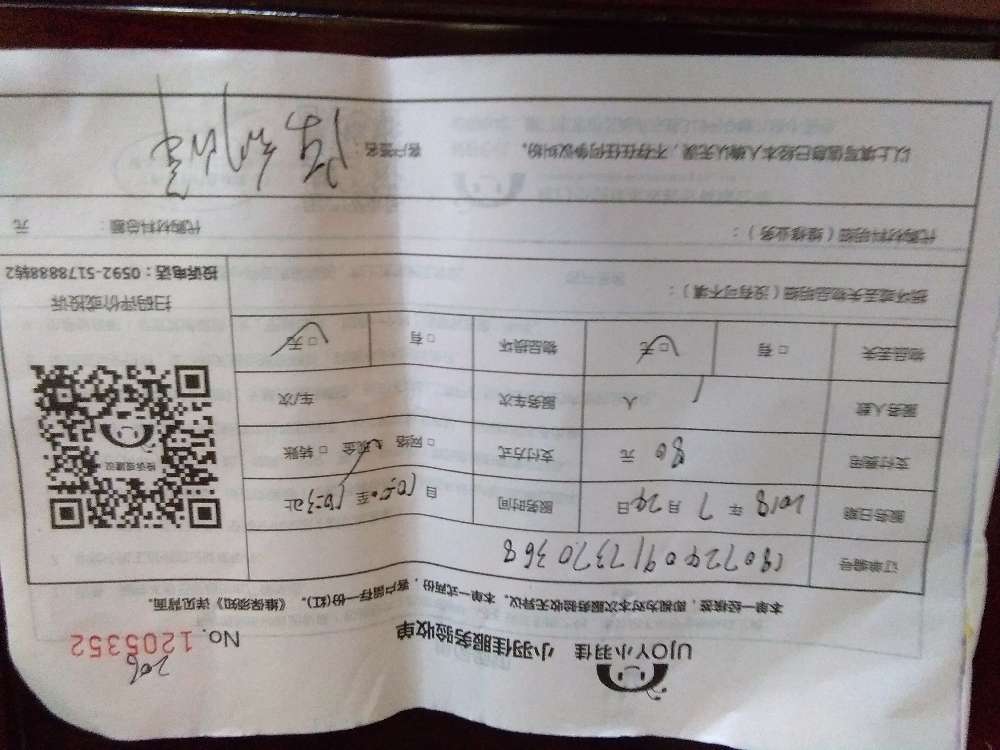 UJOY小羽佳 小羽佳服务验收单
No. 1205352
206
本单一经接签，即视为对本次服务验收无异议。本单一式两份，客户留存一份(红)。《维保须知》详见背面。
订单编号 1807240917370368
服务日期 2018 年 7 月 24 日 服务时间 自 10:50 至 止
支付费用 80 元 支付方式 □ 网络 □ 现金 □ 转账
服务人数 1 人 服务车次 车/次
物品丢失 □ 有 □ 无 物品损坏 □ 有 □ 无
投诉或建议
扫码评价或投诉
投诉电话：0592-5178888转2
损坏或丢失物品明细（没有可不填）：
代购材料明细（维修业务）： 代购材料总额： 元
以上填写信息已经本人确认无误，不存在任何争议纠纷。 客户签名：